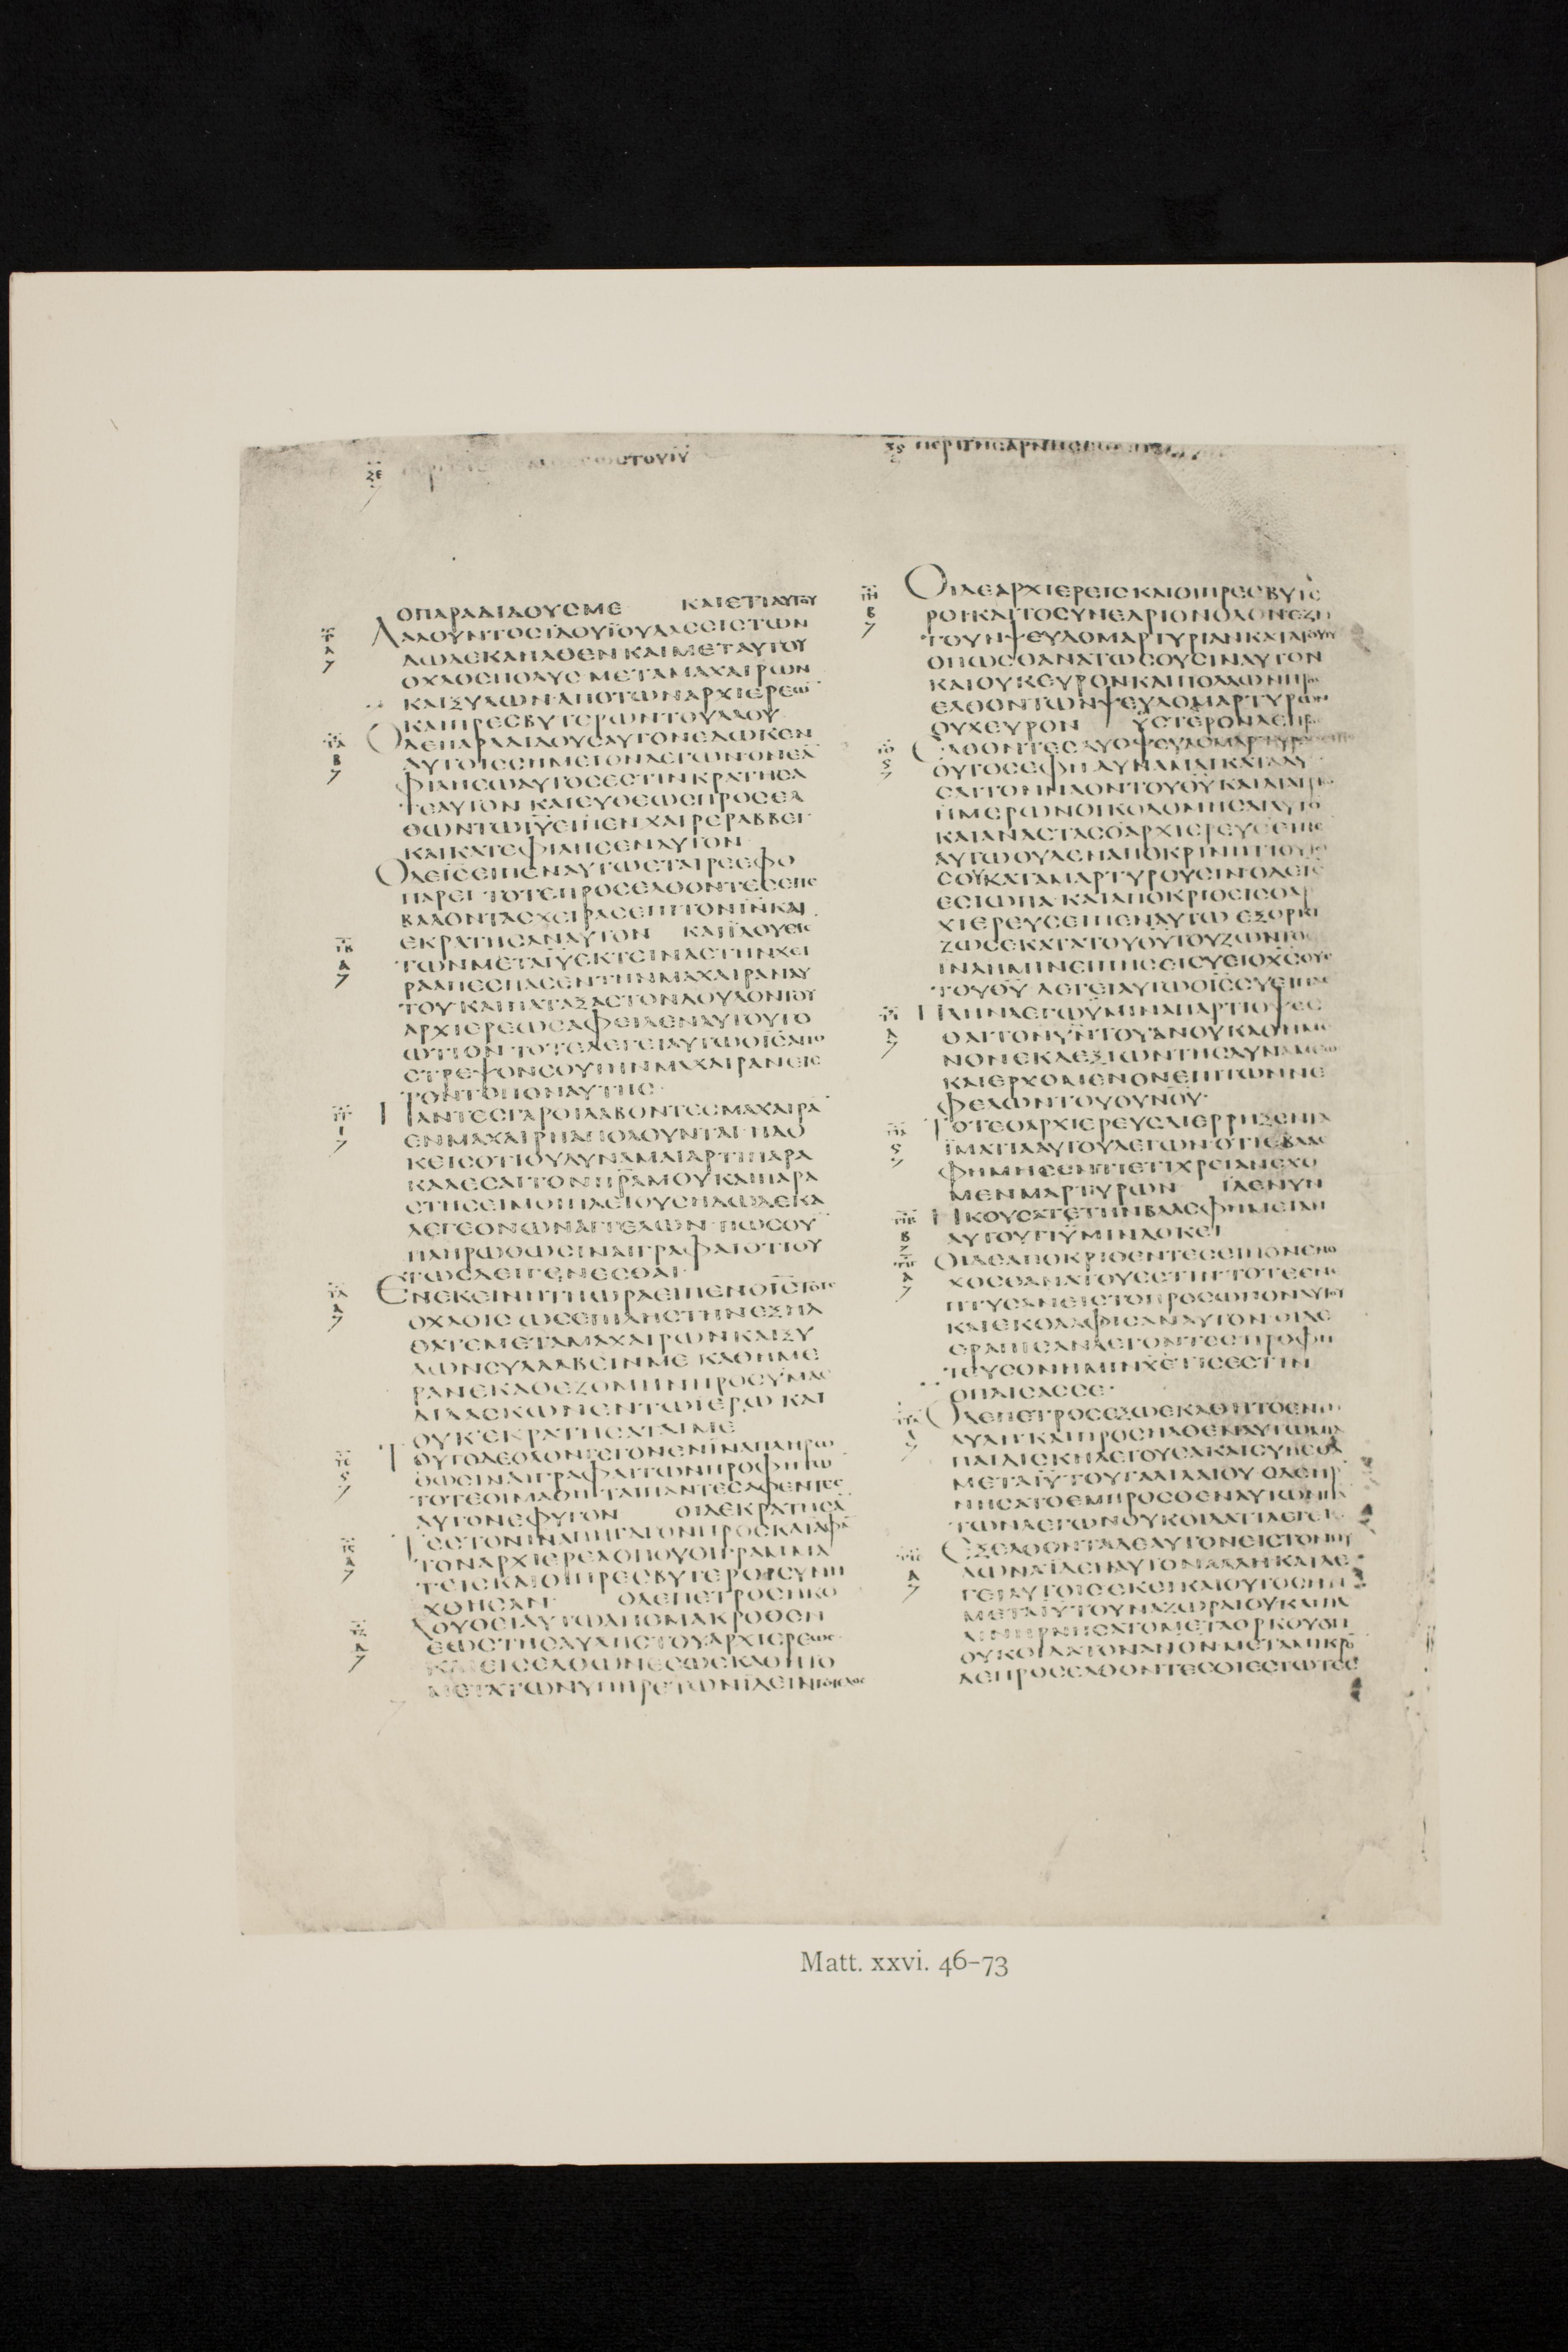 ΞΕ ΤΟΥΙ̅Υ̅
ΟΠΑΡΑΔΙΔΟΥϹΜΕ ΚΑΙΕΤΙΑΥΤΟΥ
ΛΑΛΟΥΝΤΟϹΪΔΟΥΪΟΥΔΑϹΕΙϹΤΩΝ
ΔΩΔΕΚΑΗΛΘΕΝΚΑΙΜΕΤΑΥΤΟΥ
ΟΧΛΟϹΠΟΛΥϹΜΕΤΑΜΑΧΑΙΡΩΝ
ΚΑΙΞΥΛΩΝΑΠΟΤΩΝΑΡΧΙΕΡΕΩ̅
ΚΑΙΠΡΕϹΒΥΤΕΡΩΝΤΟΥΛΑΟΥ
ΟΔΕΠΑΡΑΔΙΔΟΥϹΑΥΤΟΝΕΔΩΚΕΝ
ΑΥΤΟΙϹϹΗΜΕΙΟΝΛΕΓΩΝ·ΟΝΕΑ̅
ΦΙΛΗϹΩΑΥΤΟϹΕϹΤΙΝΚΡΑΤΗϹΑ
ΤΕΑΥΤΟΝ ΚΑΙΕΥΘΕΩϹΠΡΟϹΕΛ
ΘΩΝΤΩΙ̅Υ̅ΕΙΠΕΝ ΧΑΙΡΕΡΑΒΒΕΙ·
ΚΑΙΚΑΤΕΦΙΛΗϹΕΝΑΥΤΟΝ
ΟΔΕΙ̅Ϲ̅ΕΙΠΕΝΑΥΤΩΕΤΑΙΡΕΕΦΟ
ΠΑΡΕΙ ΤΟΤΕΠΡΟϹΕΛΘΟΝΤΕϹΕΠΕ
ΒΑΛΟΝΤΑϹΧΕΙΡΑϹΕΠΙΤΟΝΙ̅Ν̅ΚΑΙ
ΕΚΡΑΤΗϹΑΝΑΥΤΟΝ ΚΑΙΪΔΟΥΕΙϹ
ΤΩΝΜΕΤΑΙ̅Υ̅ΕΚΤΕΙΝΑϹΤΗΝΧΕΙ
ΡΑΑΠΕϹΠΑϹΕΝΤΗΝΜΑΧΑΙΡΑΝΑΥ
ΤΟΥ ΚΑΙΠΑΤΑΞΑϹΤΟΝΔΟΥΛΟΝΤΟΥ
ΑΡΧΙΕΡΕΩϹΑΦΕΙΛΕΝΑΥΤΟΥΤΟ
ΩΤΙΟΝ ΤΟΤΕΛΕΓΕΙΑΥΤΩΟΙ̅Ϲ̅ΑΠΟ
ϹΤΡΕΨΟΝϹΟΥΤΗΝΜΑΧΑΙΡΑΝΕΙϹ
ΤΟΝΤΟΠΟΝΑΥΤΗϹ·
ΠΑΝΤΕϹΓΑΡΟΙΛΑΒΟΝΤΕϹΜΑΧΑΙΡΑ
ΕΝΜΑΧΑΙΡΗΑΠΟΛΟΥΝΤΑΙ· ΗΔΟ
ΚΕΙϹΟΤΙΟΥΔΥΝΑΜΑΙΑΡΤΙΠΑΡΑ
ΚΑΛΕϹΑΙΤΟΝΠ̅Ρ̅Α̅ΜΟΥΚΑΙΠΑΡΑ
ϹΤΗϹΕΙΜΟΙΠΛΕΙΟΥϹΗΔΩΔΕΚΑ
ΛΕΓΕΟΝΩΝΑΓΓΕΛΩΝ· ΠΩϹΟΥ̅
ΠΛΗΡΩΘΩϹΙΝΑΙΓΡΑΦΑΙΟΤΙΟΥ
ΤΩϹΔΕΙΓΕΝΕϹΘΑΙ·
ΕΝΕΚΕΙΝΗΤΗΩΡΑΕΙΠΕΝΟΙ̅Ϲ̅ΤΟΙϹ
ΟΧΛΟΙϹ ΩϹΕΠΙΛΗϹΤΗΝΕΞΗΛ
ΘΑΤΕΜΕΤΑΜΑΧΑΙΡΩΝΚΑΙΞΥ
ΛΩΝϹΥΛΛΑΒΕΙΝΜΕ ΚΑΘΗΜΕ
ΡΑΝΕΚΑΘΕΖΟΜΗΝΠΡΟϹΫΜΑϹ
ΔΙΔΑϹΚΩΝΕΝΤΩΙΕΡΩ ΚΑΙ
ΟΥΚΕΚΡΑΤΗϹΑΤΑΙΜΕ
ΤΟΥΤΟΔΕΟΛΟΝΓΕΓΟΝΕΝΪΝΑΠΛΗΡΩ
ΘΩϹΙΝΑΙΓΡΑΦΑΙΤΩΝΠΡΟΦΗΤΩ̅
ΤΟΤΕΟΙΜΑΘΗΤΑΙΠΑΝΤΕϹΑΦΕΝΤΕϹ
ΑΥΤΟΝΕΦΥΓΟΝ ΟΙΔΕΚΡΑΤΗϹΑ̅
ΤΕϹΤΟΝΙ̅Ν̅ΑΠΗΓΑΓΟΝΠΡΟϹΚΑΙΑΦΑ̅
ΤΟΝΑΡΧΙΕΡΕΑΟΠΟΥΟΙΓΡΑΜΜΑ
ΤΕΙϹΚΑΙΟΙΠΡΕϹΒΥΤΕΡΟΙϹΥΝΗ
ΧΘΗϹΑΝ· ΟΔΕΠΕΤΡΟϹΗΚΟ
ΛΟΥΘΕΙΑΥΤΩΑΠΟΜΑΚΡΟΘΕΝ
ΕΩϹΤΗϹΑΥΛΗϹΤΟΥΑΡΧΙΕΡΕΩϹ·
ΚΑΙΕΙϹΕΛΘΩΝΕϹΩΕΚΑΘΗΤΟ
ΜΕΤΑΤΩΝΥΠΗΡΕΤΩΝΙΔΕΙΝΤΟΤΕΛΟϹ
Ξϛ ΠΕΡΙΤΗϹΑΡΝΗϹΕΩϹ
ΟΙΔΕΑΡΧΙΕΡΕΙϹΚΑΙΟΙΠΡΕϹΒΥΤΕ
ΡΟΙΚΑΙΤΟϹΥΝΕΔΡΙΟΝΟΛΟΝΕΖΗ
ΤΟΥΝΨΕΥΔΟΜΑΡΤΥΡΙΑΝΚΑΤΑΤΟΥΙ̅Υ̅
ΟΠΩϹΘΑΝΑΤΩϹΟΥϹΙΝΑΥΤΟΝ
ΚΑΙΟΥΚΕΥΡΟΝΚΑΙΠΟΛΛΩΝΠΡΟϹ
ΕΛΘΟΝΤΩΝΨΕΥΔΟΜΑΡΤΥΡΩΝ
ΟΥΧΕΥΡΟΝ ΫϹΤΕΡΟΝΔΕΠΡΟϹ
ΕΛΘΟΝΤΕϹΔΥΟΨΕΥΔΟΜΑΡΤΥΡΕϹ
ΟΥΤΟϹΕΦΗΔΥΝΑΜΑΙΚΑΤΑΛΥ
ϹΑΙΤΟΝΝΑΟΝΤΟΥΘ̅Υ̅ΚΑΙΔΙΑΤΡΙΩ̅
ΗΜΕΡΩΝΟΙΚΟΔΟΜΗϹΑΙΑΥΤΟ̅
ΚΑΙΑΝΑϹΤΑϹΟΑΡΧΙΕΡΕΥϹΕΙΠΕ
ΑΥΤΩΟΥΔΕΝΑΠΟΚΡΙΝΗΤΙΟΥΤΟΙ
ϹΟΫΚΑΤΑΜΑΡΤΥΡΟΥϹΙΝΟΔΕΙ̅Ϲ̅
ΕϹΙΩΠΑ·ΚΑΙΑΠΟΚΡΙΘΕΙϹΟΑΡ
ΧΙΕΡΕΥϹΕΙΠΕΝΑΥΤΩ ΕΞΟΡΚΙ
ΖΩϹΕΚΑΤΑΤΟΥΘ̅Υ̅ΤΟΥΖΩΝΤΟϹ
ΙΝΑΗΜΙΝΕΙΠΗϹΕΙϹΥΕΙΟΧ̅Ϲ̅ΟΥΙΟϹ
ΤΟΥΘ̅Υ̅ ΛΕΓΕΙΑΥΤΩΟΙ̅Ϲ̅ϹΥΕΙΠΑϹ
ΠΛΗΝΛΕΓΩΫΜΙΝΑΠΑΡΤΙΟΨΕϹ
ΘΑΙΤΟΝΥ̅Ν̅ΤΟΥΑ̅Ν̅Ο̅Υ̅ΚΑΘΗΜΕ
ΝΟΝΕΚΔΕΞΙΩΝΤΗϹΔΥΝΑΜΕΩϹ
ΚΑΙΕΡΧΟΜΕΝΟΝΕΠΙΤΩΝΝΕ
ΦΕΛΩΝΤΟΥΟΥΝΟΥ·
ΤΟΤΕΟΑΡΧΙΕΡΕΥϹΔΙΕΡΡΗΞΕΝΤΑ
ΪΜΑΤΙΑΑΥΤΟΥΛΕΓΩΝΟΤΙΕΒΛΑϹ
ΦΗΜΗϹΕΝΤΙΕΤΙΧΡΕΙΑΝΕΧΟ
ΜΕΝΜΑΡΤΥΡΩΝ ΪΔΕΝΥΝ
ΗΚΟΥϹΑΤΕΤΗΝΒΛΑϹΦΗΜΕΙΑΝ
ΑΥΤΟΥΤΙΫΜΙΝΔΟΚΕΙ
ΟΙΔΕΑΠΟΚΡΙΘΕΝΤΕϹΕΙΠΟΝΕΝΟ
ΧΟϹΘΑΝΑΤΟΥΕϹΤΙΝ· ΤΟΤΕΕΝΕ
ΠΤΥϹΑΝΕΙϹΤΟΠΡΟϹΩΠΟΝΑΥΤΟΥ
ΚΑΙΕΚΟΛΑΦΙϹΑΝΑΥΤΟΝ·ΟΙΔΕ
ΕΡΑΠΙϹΑΝΛΕΓΟΝΤΕϹΠΡΟΦΗ
ΤΕΥϹΟΝΗΜΙΝΧ̅Ε̅ΤΙϹΕϹΤΙΝ
ΟΠΑΙϹΑϹϹΕ·
ΟΔΕΠΕΤΡΟϹΕΞΩΕΚΑΘΗΤΟΕΝΤΗ
ΑΥΛΗ·ΚΑΙΠΡΟϹΗΛΘΕΝΑΥΤΩΜΙΑ
ΠΑΙΔΙϹΚΗΛΕΓΟΥϹΑΚΑΙϹΥΗϹΘΑ
ΜΕΤΑΙ̅Υ̅ΤΟΥΓΑΛΙΛΑΙΟΥ ΟΔΕΗΡ
ΝΗϹΑΤΟΕΜΠΡΟϹΘΕΝΑΥΤΩΝΠΑ̅
ΤΩΝΛΕΓΩΝΟΥΚΟΙΔΑΤΙΛΕΓΕΙϹ
ΕΞΕΛΘΟΝΤΑΔΕΑΥΤΟΝΕΙϹΤΟΝΠΥ
ΛΩΝΑΪΔΕΝΑΥΤΟΝΑΛΛΗΚΑΙΛΕ
ΓΕΙΑΥΤΟΙϹΕΚΕΙΚΑΙΟΥΤΟϹΗΝ
ΜΕΤΑΙ̅Υ̅ΤΟΥΝΑΖΩΡΑΙΟΥΚΑΙΠΑ
ΛΙΝΗΡΝΗϹΑΤΟΜΕΤΑΟΡΚΟΥΟΤΙ
ΟΥΚΟΙΔΑΤΟΝΑ̅Ν̅Ο̅Ν̅·ΜΕΤΑΜΙΚΡΟ̅
ΔΕΠΡΟϹΕΛΘΟΝΤΕϹΟΙΕϹΤΩΤΕϹ
Matt. xxvi. 46–73